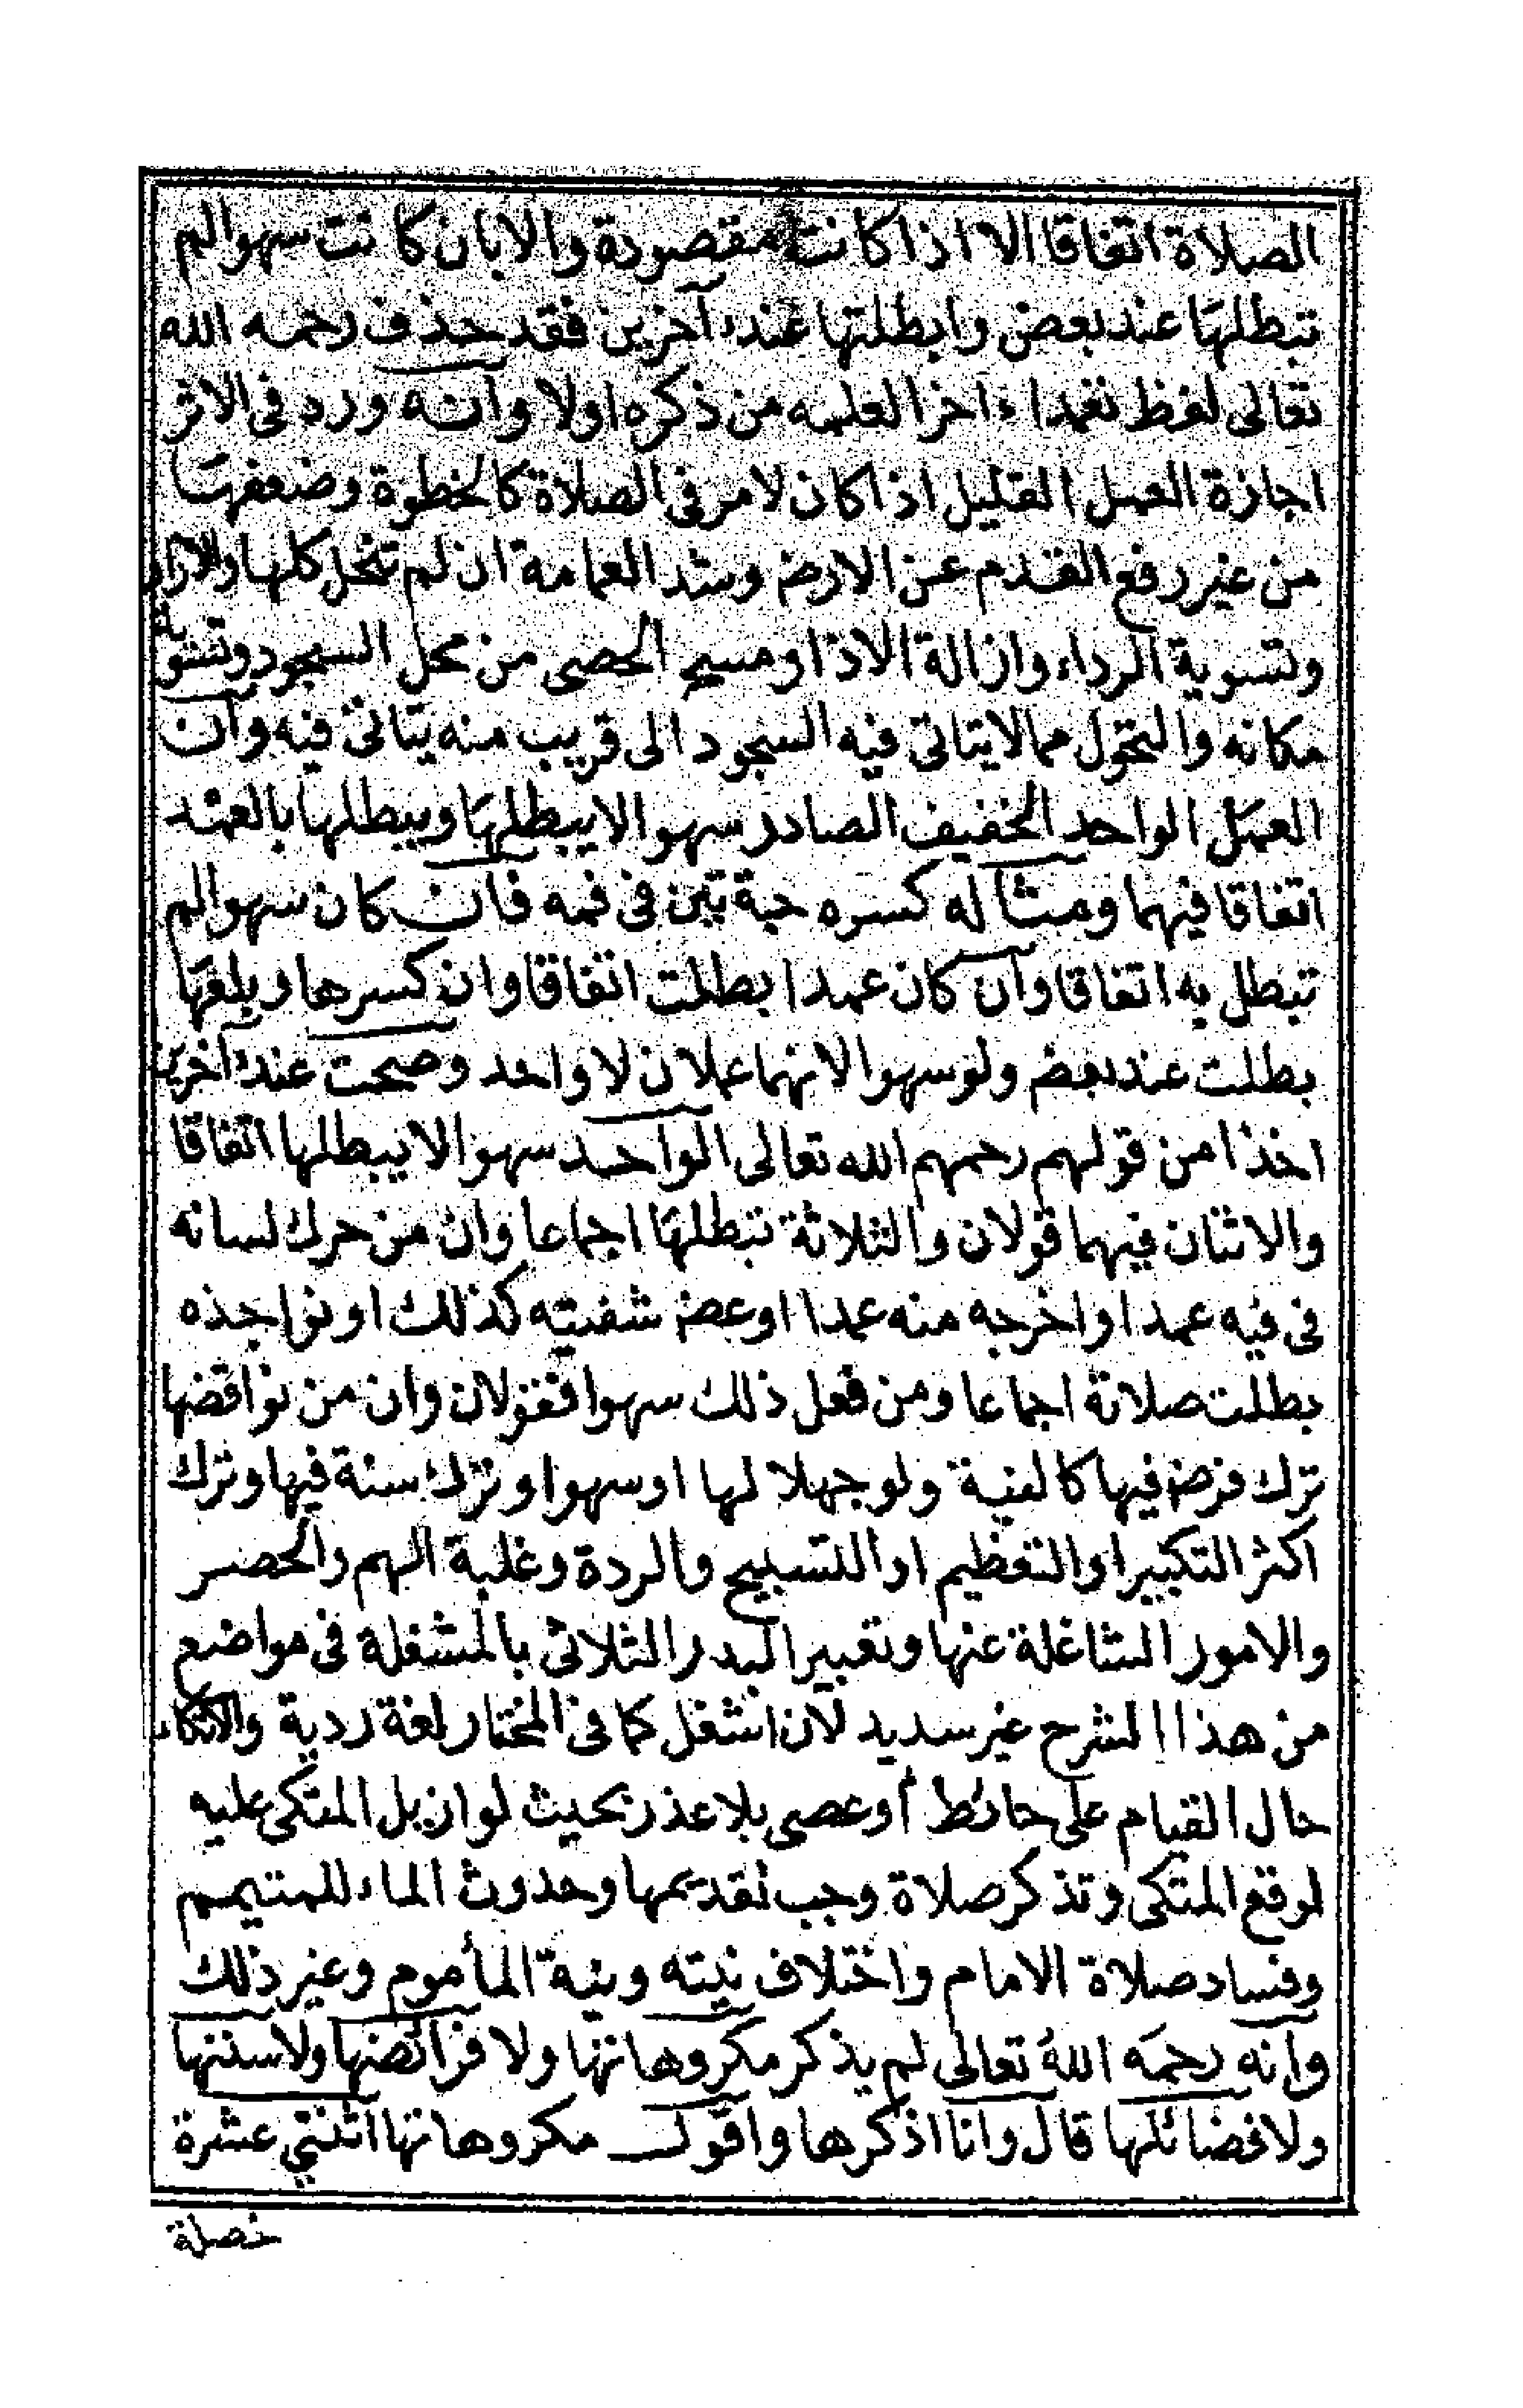 الصلاة اتفاقا الا اذا كانت مقصودة والا بان كانت سهوا لم
تبطلها عند بعض وابطلتها عند آخرين فقد حذف رحمه الله
تعالى لفظ تعمداء اخرا لعلمه من ذكره اولا وانه ورد فى الاثر
اجازة العمل القليل اذا كان لامر فى الصلاة كالخطوة وضعفها
من غير رفع القدم عن الارض وشد العمامة ان لم تنحل كلها
وتسوية الرداء وازالة الاذا ومسح الحصى من محل السجود
مكانه والتحول مما لا يتاتى فيه السجود الى قريب منه يتاتى فيه وان
العمل الواحد الخفيف الصادر سهوا لا يبطلها ويبطلها بالعمد
اتفاقا فيهما ومثاله كسره حبة تين فى فمه فان كان سهوا لم
تبطل به اتفاقا وان كان عمدا بطلت اتفاقا وان كسرها وبلعها
بطلت عند بعض ولو سهوا لانهما عملان لا واحد وصحت عند آخرين
اخذا من قولهم رحمهم الله تعالى الواحد سهوا لا يبطلها اتفاقا
والاثنان فيهما قولان والثلاثة تبطلها اجماعا وان من حرك لسانه
فى فيه عمدا او اخرجه منه عمدا او عض شفتيه كذلك او نواجذه
بطلت صلاته اجماعا ومن فعل ذلك سهوا فقولان وان من نواقضها
ترك فرض فيها كالنية ولو جهلا لها او سهوا وترك سنة فيها وترك
اكثر التكبير او التعظيم او التسبيح والردة وغلبة الهم والحصر
والامور الشاغلة عنها وتعبير البدر الثلاثى بالمشغلة فى مواضع
من هذا الشرح غير سديد لان اشغل كما فى المختار لغة ردية والاتكاء
حال القيام على حائط أو عصى بلا عذر بحيث لو ازيل المتكى عليه
لوقع المتكى وتذكر صلاة وجب تقديمها وحدوث الماء للمتيمم
وفساد صلاة الامام واختلاف نيته ونية المأموم وغير ذلك
وانه رحمه الله تعالى لم يذكر مكروهاتها ولا فرائضها ولا سننها
ولا فضائلها قال وانا اذكرها واقول مكروهاتها اثنتي عشرة
خصلة